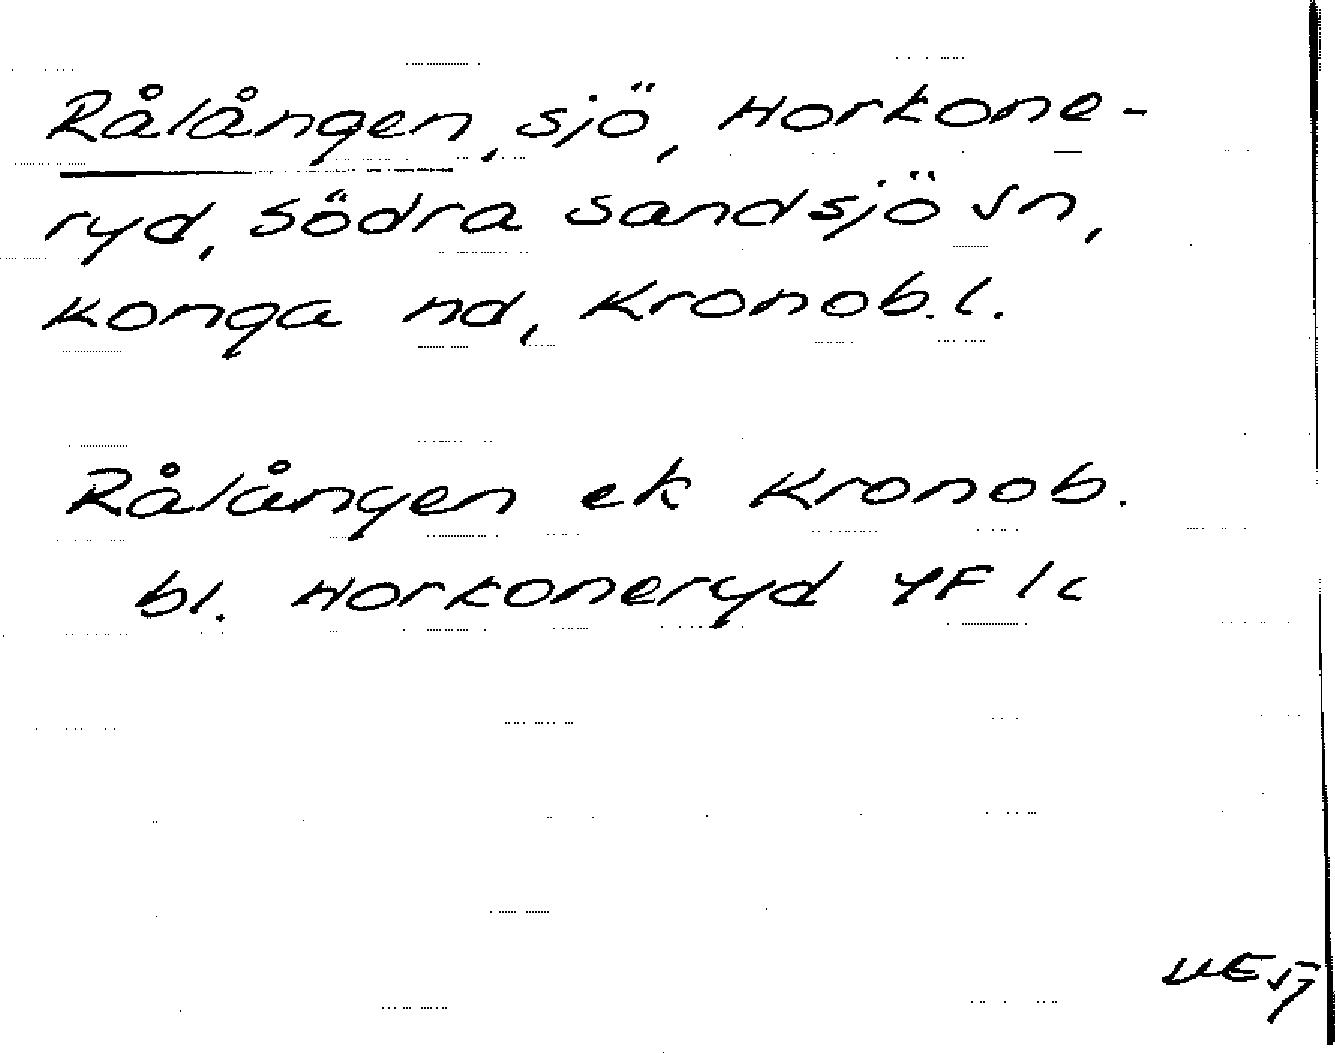 Rålången, sjö, Horkone-
ryd, Södra Sandsjö sn,
Konga hd, Kronob.l.
Rålången ek Kronob.
bl. Horkoneryd 4F 1c